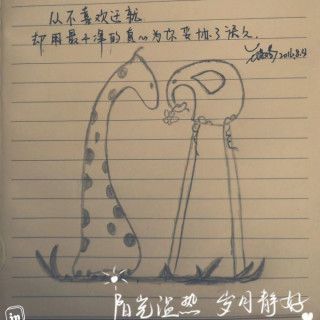 从不喜欢迁就
却用最干净的真心为你妥协了很久.
2016.8.9
阳光温热 岁月静好
in